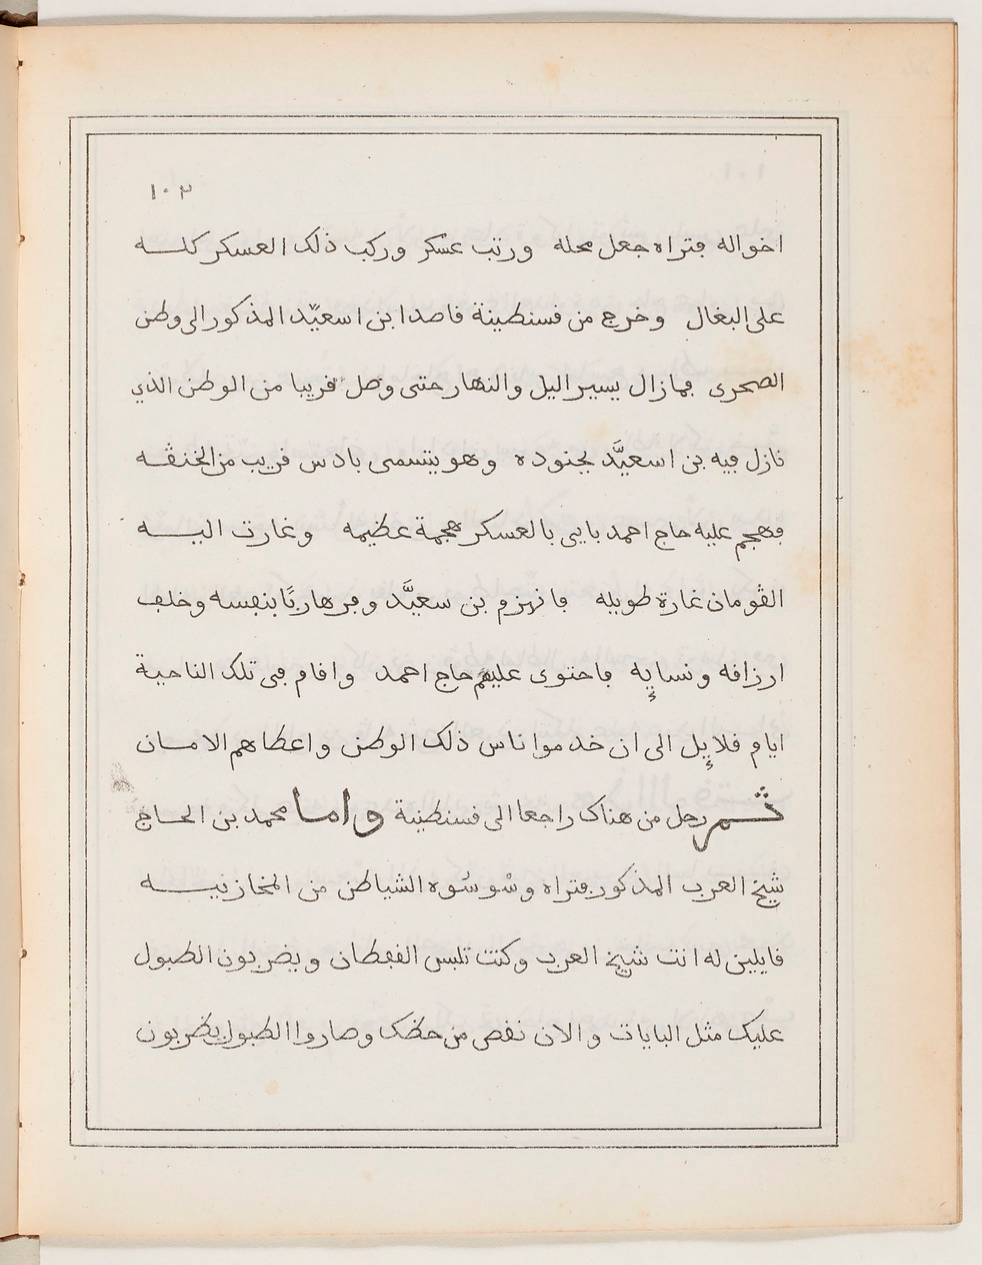 ١٠٢
اخواله فتراه جعل محله ورتب عسكر وركب ذلك العسكر كلـــه
على البغال وخرج من قسنطينة قاصدا بن اسعيّد المذكور الى وطن
الصحرى فمازال يسير اليل والنهار حتى وصل قريبا من الوطن الذي
نازل فيه بن اسعيَّد بجنوده وهو يتسمى بادس قريب من الخنڤـه
فهجم عليه حاج احمد بايى بالعسكر هجمة عظيمه وغارت اليـــه
الڤومان غارة طويله فانهزم بن سعيَّد وفر هاربًا بنفسه وخلف
ارزاقه ونسايٕه فاحتوى عليهم حاج احمد واقام فى تلك الناحية
ايام قلايٕل الى ان خدموا ناس ذلك الوطن واعطاهم الامــان
ثـــم رحل من هناك راجعا الى قسنطينة واما محمد بن الحـاج
شيخ العرب المذكور فتراه وشوشوه الشياطن من المخازنيـــه
قايلين له انت شيخ العرب وكنت تلبس القفطان ويضربون الطبول
عليك مثل البايات والان نقص من حظك وصاروا الطبول يضربون